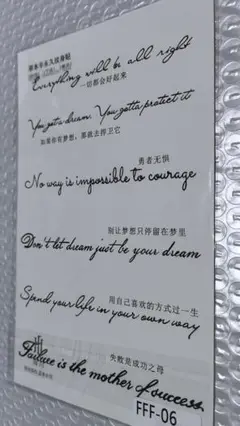 草本半永久纹身贴
Everything will be all right
一切都会好起来
You got a dream. You gotta protect it
如果你有梦想，那就去捍卫它
勇者无惧
No way is impossible to courage
别让梦想只停留在梦里
Don't let dream just be your dream
用自己喜欢的方式过一生
Spend your life in your own way
失败是成功之母
Failure is the mother of success
FFF-06